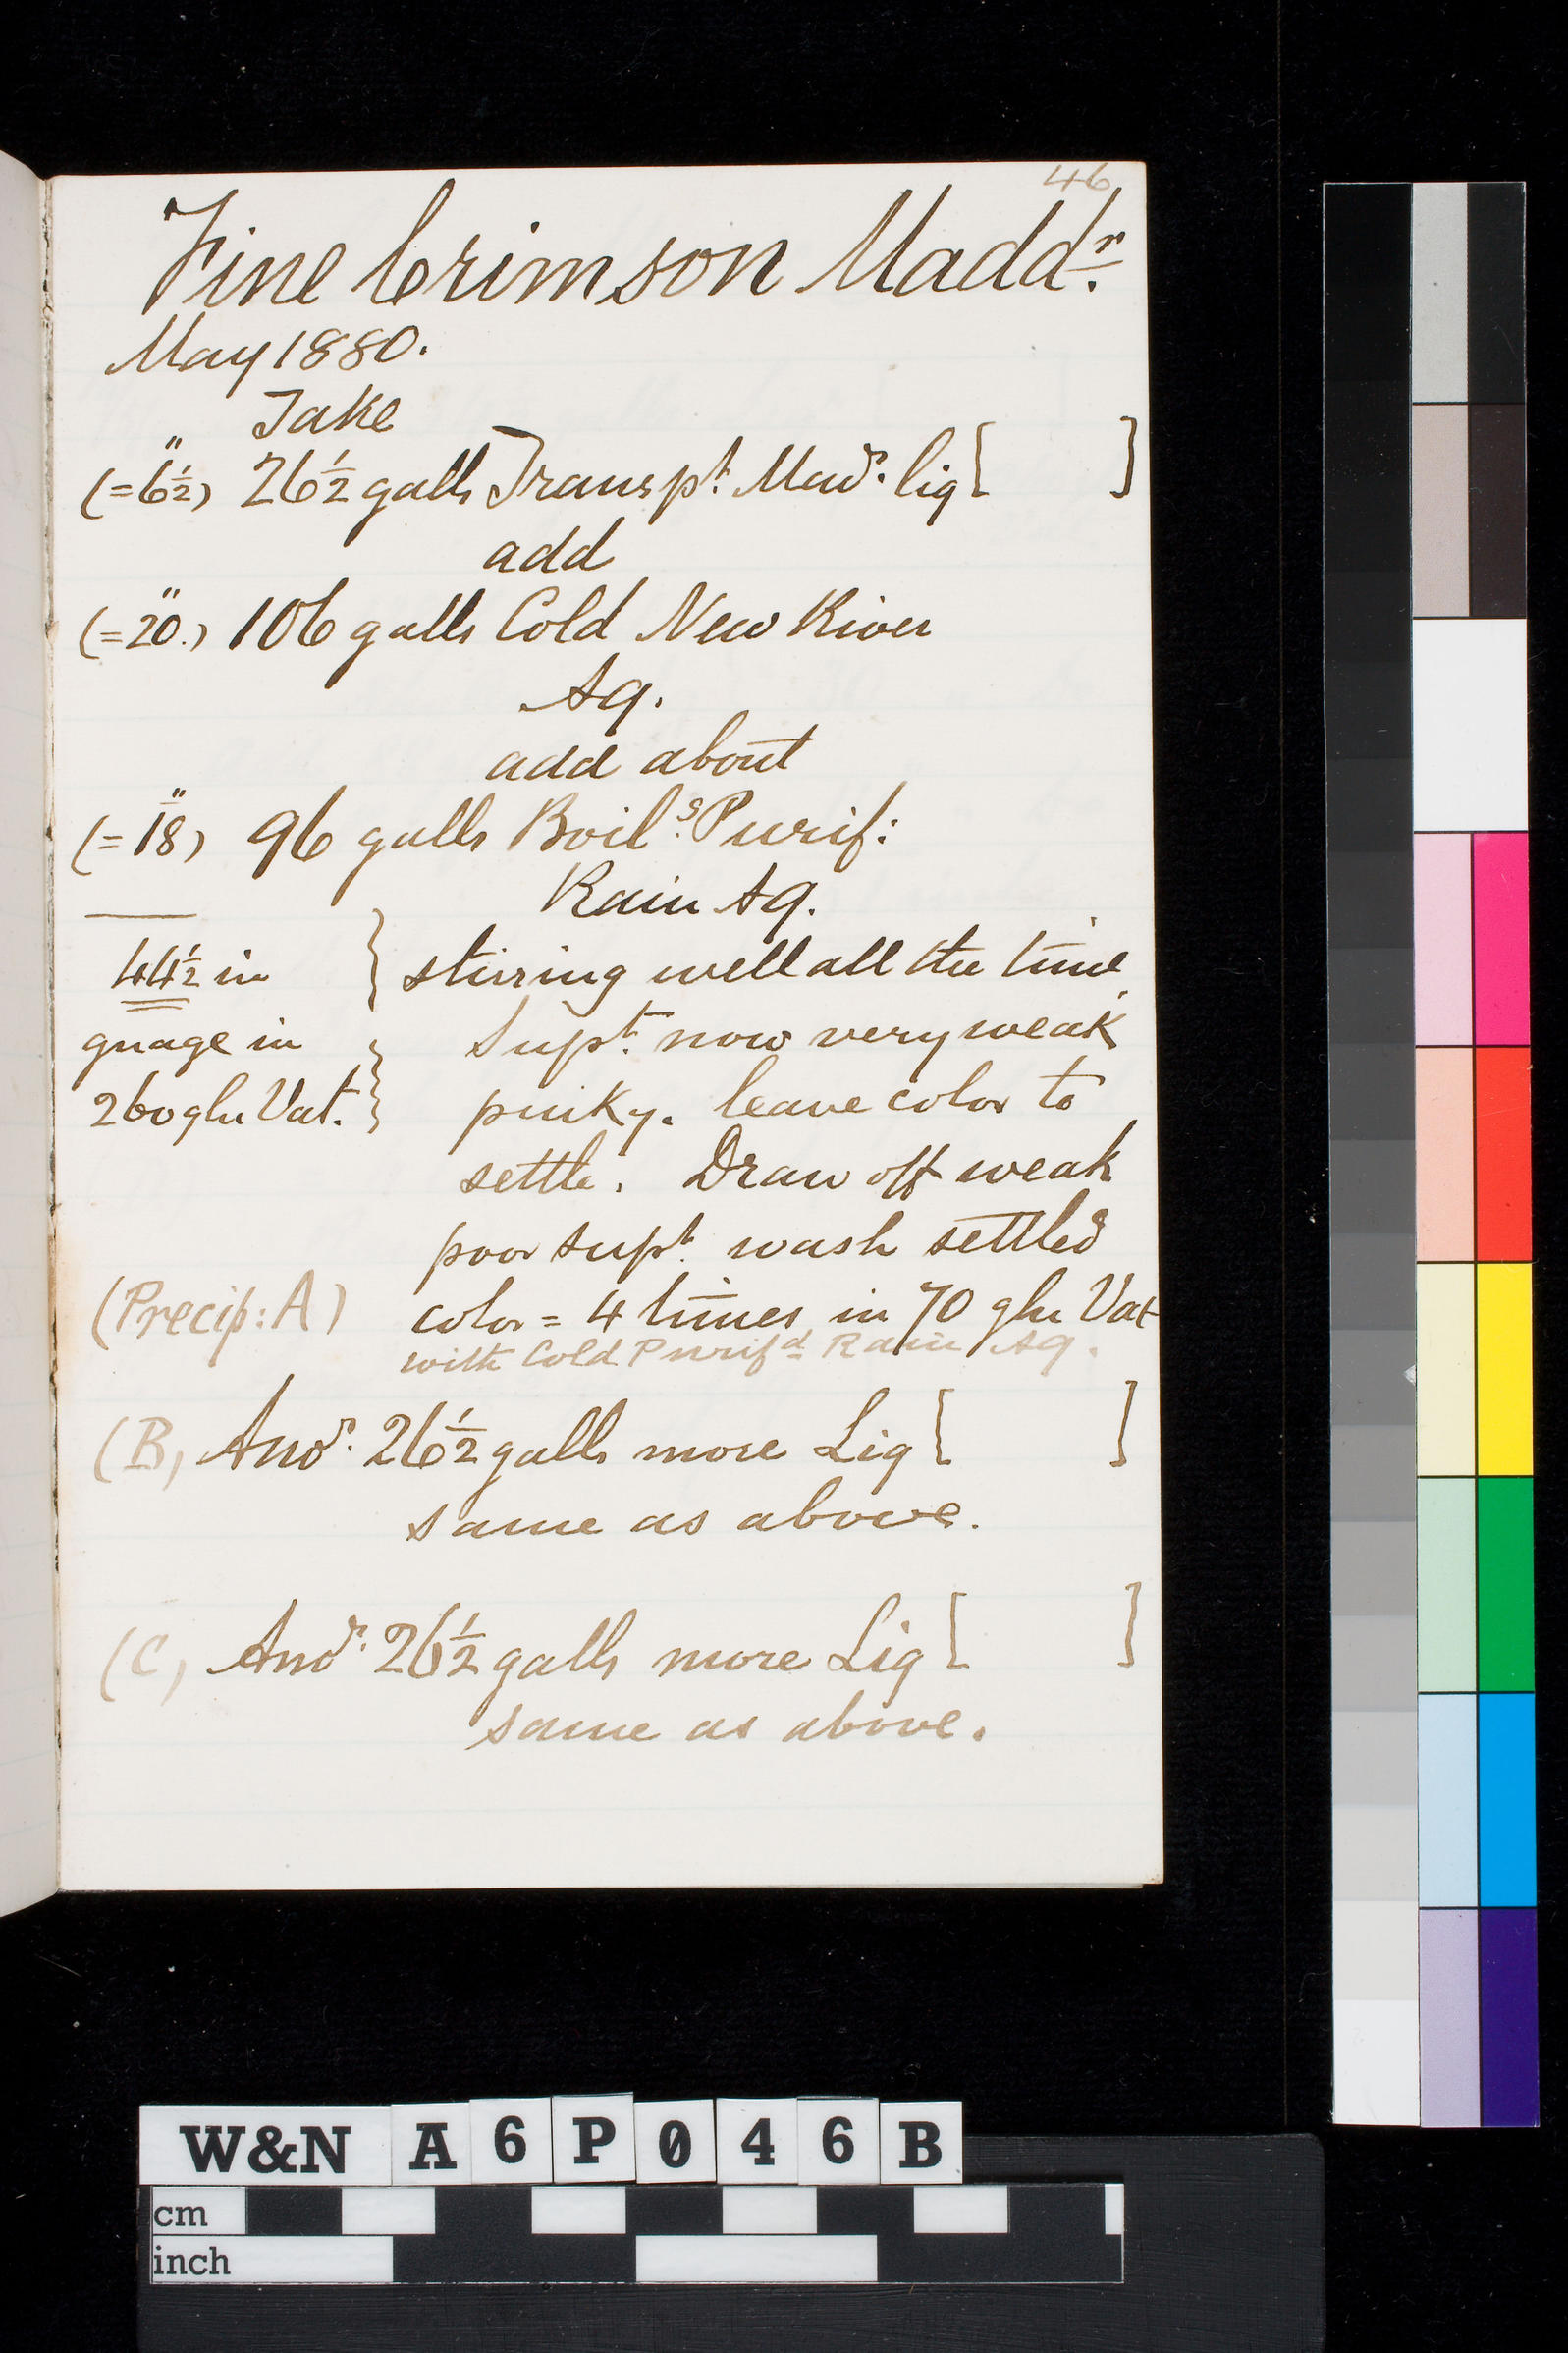 46
Fine Crimson Madd^r.
May 1880.
Take
(=6½") 26½ galls Transp^t. Mad^r. liq [ ]
add
(=20".) 106 galls Cold New River
Aq.
add about
(=18") 96 galls Boil^g. Purif:
Rain Aq.
44½ in } stirring well all the time.
guage in } Sup^t. now very weak
260 gln Vat. } pinky. leave color to
settle. Draw off weak
poor sup^t. wash settled
(Precip: A) color = 4 times in 70 gln Vat
with Cold Purif^d Rain Aq.
(B) Ano^r. 26½ galls more Liq [ ]
same as above.
(C) Ano^r. 26½ galls more Liq [ ]
same as above.
W&N A6P046B
cm
inch